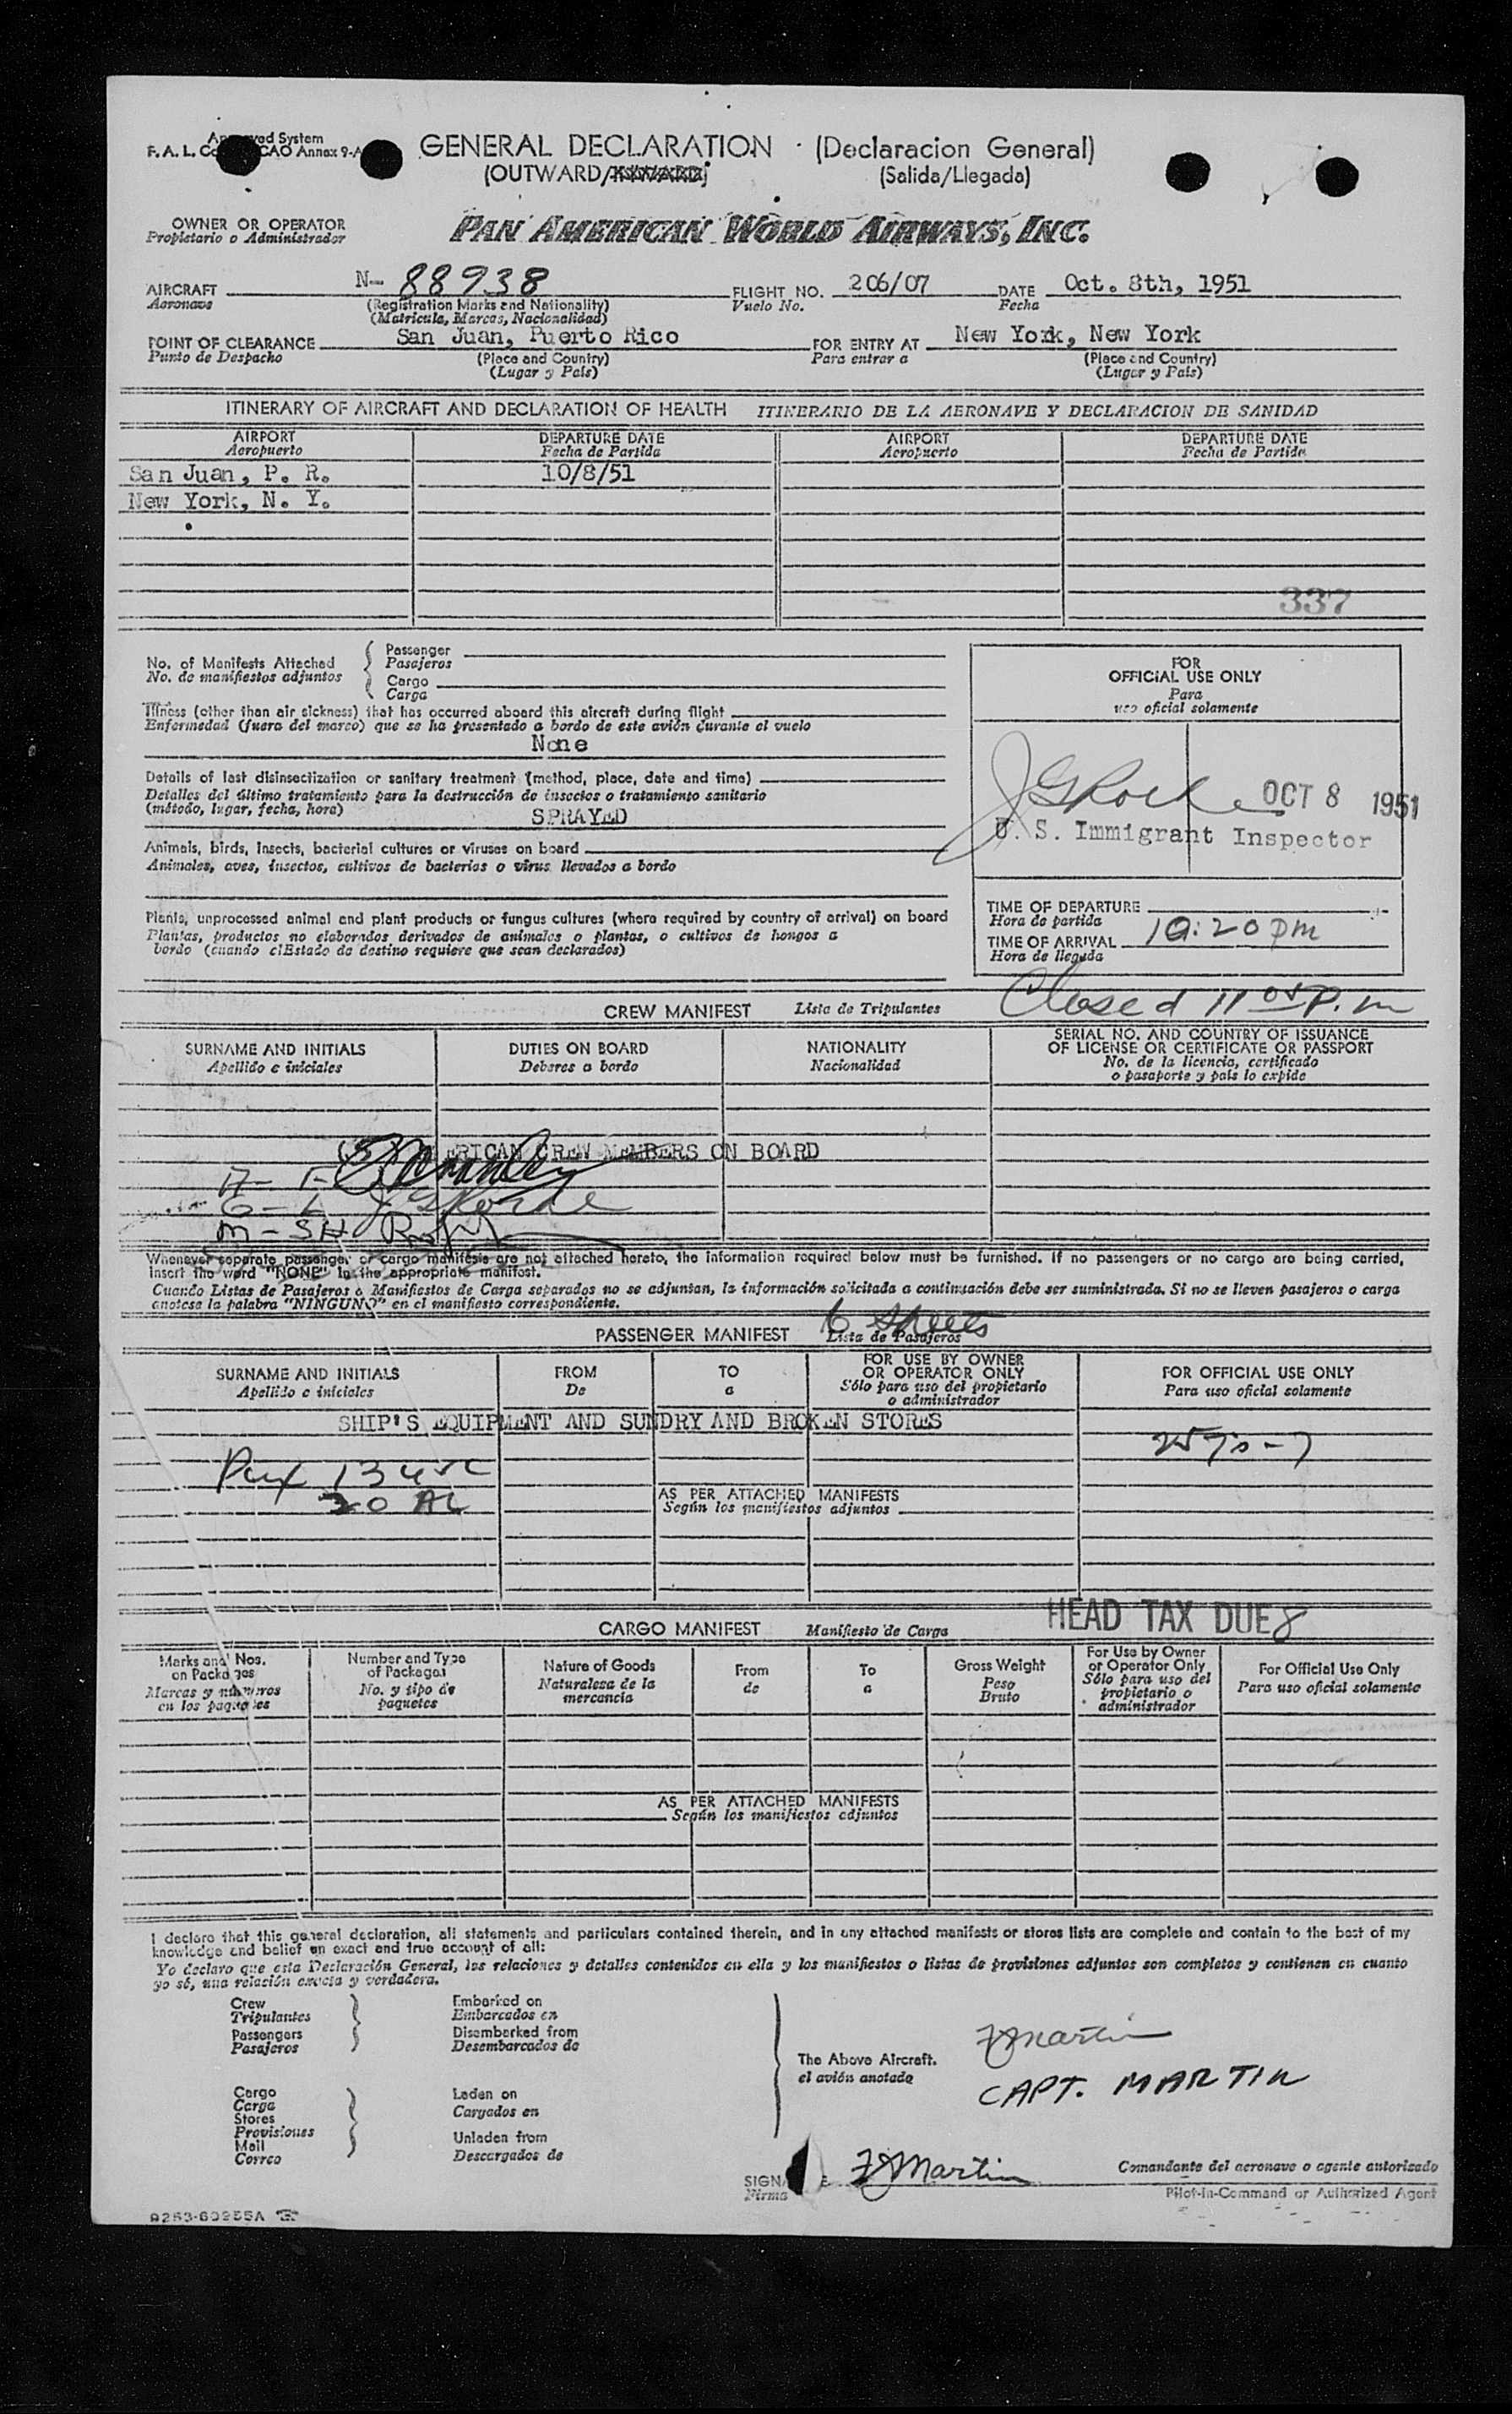 Approved System
F. A. L. Co ICAO Annex 9-A
GENERAL DECLARATION · (Declaracion General)
(OUTWARD/INWARD) (Salida/Llegada)
OWNER OR OPERATOR
Propietario o Administrador
PAN AMERICAN WORLD AIRWAYS, INC.
AIRCRAFT N- 88938 FLIGHT NO. 206/07 DATE Oct. 8th, 1951
Aeronave (Registration Marks and Nationality) Vuelo No. Fecha
(Matricula, Marcas, Nacionalidad)
POINT OF CLEARANCE San Juan, Puerto Rico FOR ENTRY AT New York, New York
Punto de Despacho (Place and Country) Para entrar a (Place and Country)
(Lugar y País) (Lugar y País)
ITINERARY OF AIRCRAFT AND DECLARATION OF HEALTH ITINERARIO DE LA AERONAVE Y DECLARACION DE SANIDAD
AIRPORT DEPARTURE DATE AIRPORT DEPARTURE DATE
Aeropuerto Fecha de Partida Aeropuerto Fecha de Partida
San Juan, P. R. 10/8/51
New York, N. Y.
337
No. of Manifests Attached
No. de manifiestos adjuntos
Passenger
Pasajeros
Cargo
Carga
Illness (other than air sickness) that has occurred aboard this aircraft during flight
Enfermedad (fuera del mareo) que se ha presentado a bordo de este avión durante el vuelo
None
Details of last disinsectization or sanitary treatment (method, place, date and time)
Detalles del último tratamiento para la destrucción de insectos o tratamiento sanitario
(método, lugar, fecha, hora)
SPRAYED
Animals, birds, insects, bacterial cultures or viruses on board
Animales, aves, insectos, cultivos de bacterias o virus llevados a bordo
Plants, unprocessed animal and plant products or fungus cultures (where required by country of arrival) on board
Plantas, productos no elaborados derivados de animales o plantas, o cultivos de hongos a
bordo (cuando el Estado de destino requiere que sean declarados)
FOR
OFFICIAL USE ONLY
Para
uso oficial solamente
OCT 8 1951
U. S. Immigrant Inspector
TIME OF DEPARTURE
Hora de partida
TIME OF ARRIVAL 10:20 pm
Hora de llegada
Closed 11 05 P.m
CREW MANIFEST Lista de Tripulantes
SURNAME AND INITIALS DUTIES ON BOARD NATIONALITY SERIAL NO. AND COUNTRY OF ISSUANCE
Apellido e iniciales Deberes a bordo Nacionalidad OF LICENSE OR CERTIFICATE OR PASSPORT
No. de la licencia, certificado
o pasaporte y país lo expide
(5) AMERICAN CREW MEMBERS ON BOARD
Whenever separate passenger or cargo manifests are not attached hereto, the information required below must be furnished. If no passengers or no cargo are being carried,
insert the word "NONE" in the appropriate manifest.
Cuando Listas de Pasajeros o Manifiestos de Carga separados no se adjuntan, la información solicitada a continuación debe ser suministrada. Si no se lleven pasajeros o carga
anotese la palabra "NINGUNO" en el manifiesto correspondiente.
PASSENGER MANIFEST Lista de Pasajeros 6 Sheets
SURNAME AND INITIALS FROM TO FOR USE BY OWNER FOR OFFICIAL USE ONLY
Apellido e iniciales De a OR OPERATOR ONLY Para uso oficial solamente
Sólo para uso del propietario
o administrador
SHIP'S EQUIPMENT AND SUNDRY AND BROKEN STORES
20 AL
AS PER ATTACHED MANIFESTS
Según los manifiestos adjuntos
HEAD TAX DUE 8
CARGO MANIFEST Manifiesto de Carga
Marks and Nos.
on Packages
Marcas y números
en los paquetes
Number and Type
of Packages
No. y tipo de
paquetes
Nature of Goods
Naturaleza de la
mercancia
From
de
To
a
Gross Weight
Peso
Bruto
For Use by Owner
or Operator Only
Sólo para uso del
propietario o
administrador
For Official Use Only
Para uso oficial solamente
AS PER ATTACHED MANIFESTS
Según los manifiestos adjuntos
I declare that this general declaration, all statements and particulars contained therein, and in any attached manifests or stores lists are complete and contain to the best of my
knowledge and belief an exact and true account of all:
Yo declaro que esta Declaración General, las relaciones y detalles contenidos en ella y los manifiestos o listas de provisiones adjuntos son completos y contienen en cuanto
yo sé, una relación exacta y verdadera.
Crew Embarked on
Tripulantes Embarcados en
Passengers Disembarked from
Pasajeros Desembarcados de
The Above Aircraft.
el avión anotado
FJMartin
CAPT. MARTIN
Cargo Laden on
Carga Cargados en
Stores
Provisiones
Mail Unladen from
Correo Descargados de
SIGNATURE FJMartin
Firma
Comandante del aeronave o agente autorizado
Pilot-in-Command or Authorized Agent